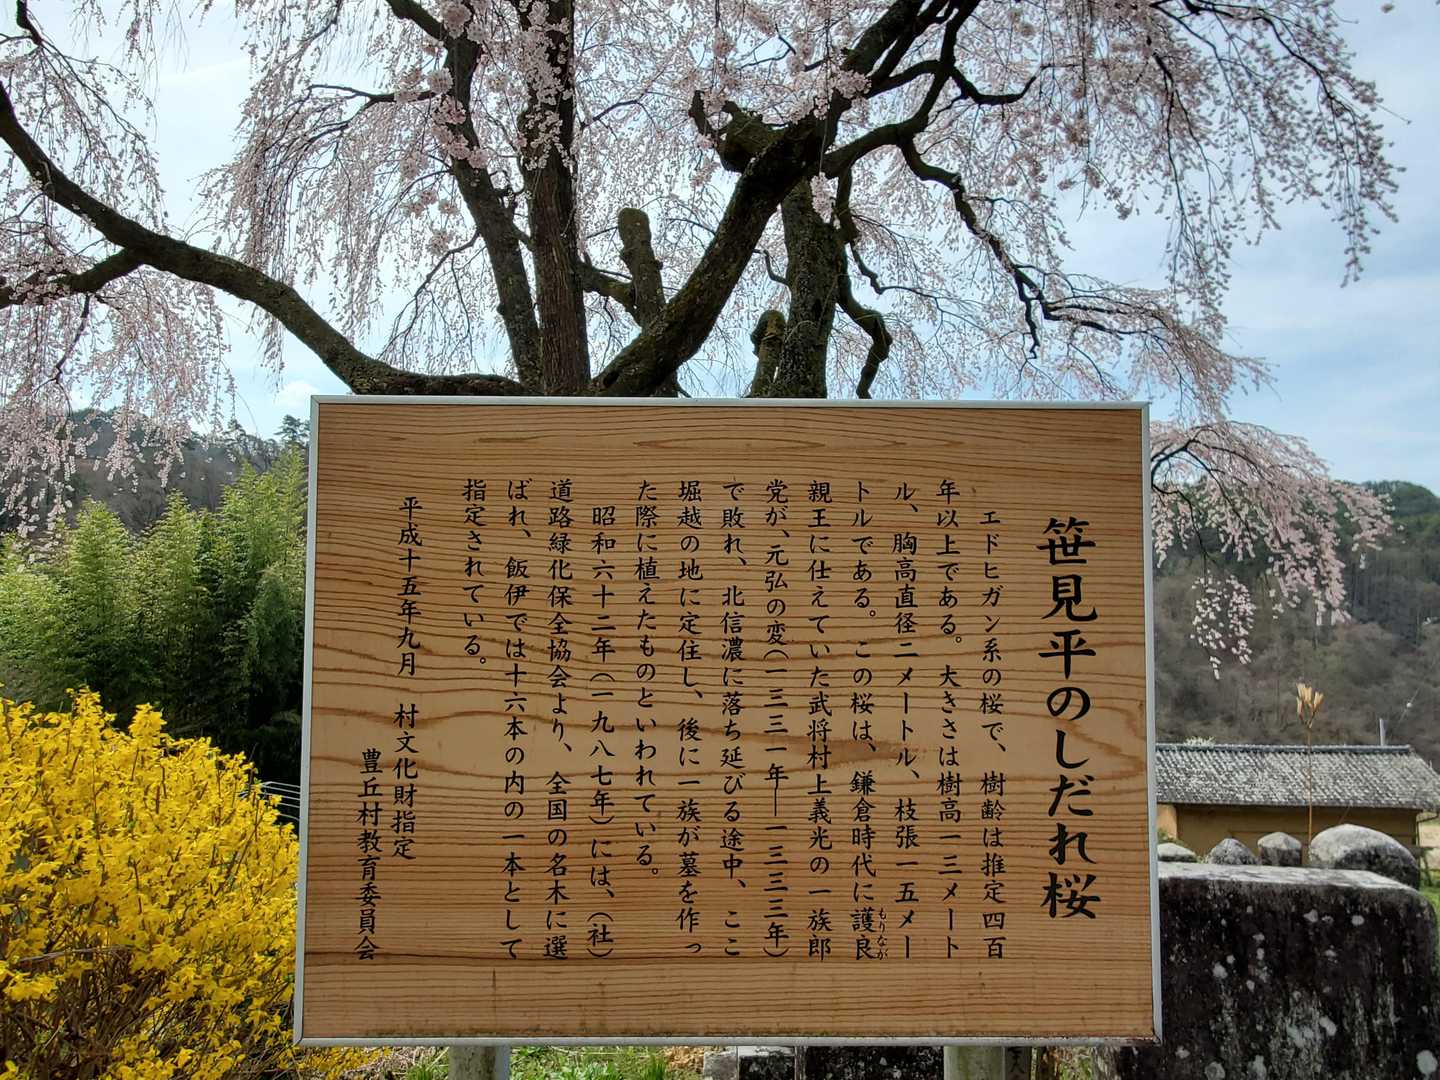 笹見平のしだれ桜
エドヒガン系の桜で、樹齢は推定四百
年以上である。大きさは樹高一三メート
ル、胸高直径二メートル、枝張一五メー
トルである。この桜は、鎌倉時代に護良
もりなが
親王に仕えていた武将村上義光の一族郎
党が、元弘の変(一三三一年―一三三三年)
で敗れ、北信濃に落ち延びる途中、ここ
堀越の地に定住し、後に一族が墓を作っ
た際に植えたものといわれている。
昭和六十二年(一九八七年)には、(社)
道路緑化保全協会より、全国の名木に選
ばれ、飯伊では十六本の内の一本として
指定されている。
平成十五年九月 村文化財指定
豊丘村教育委員会